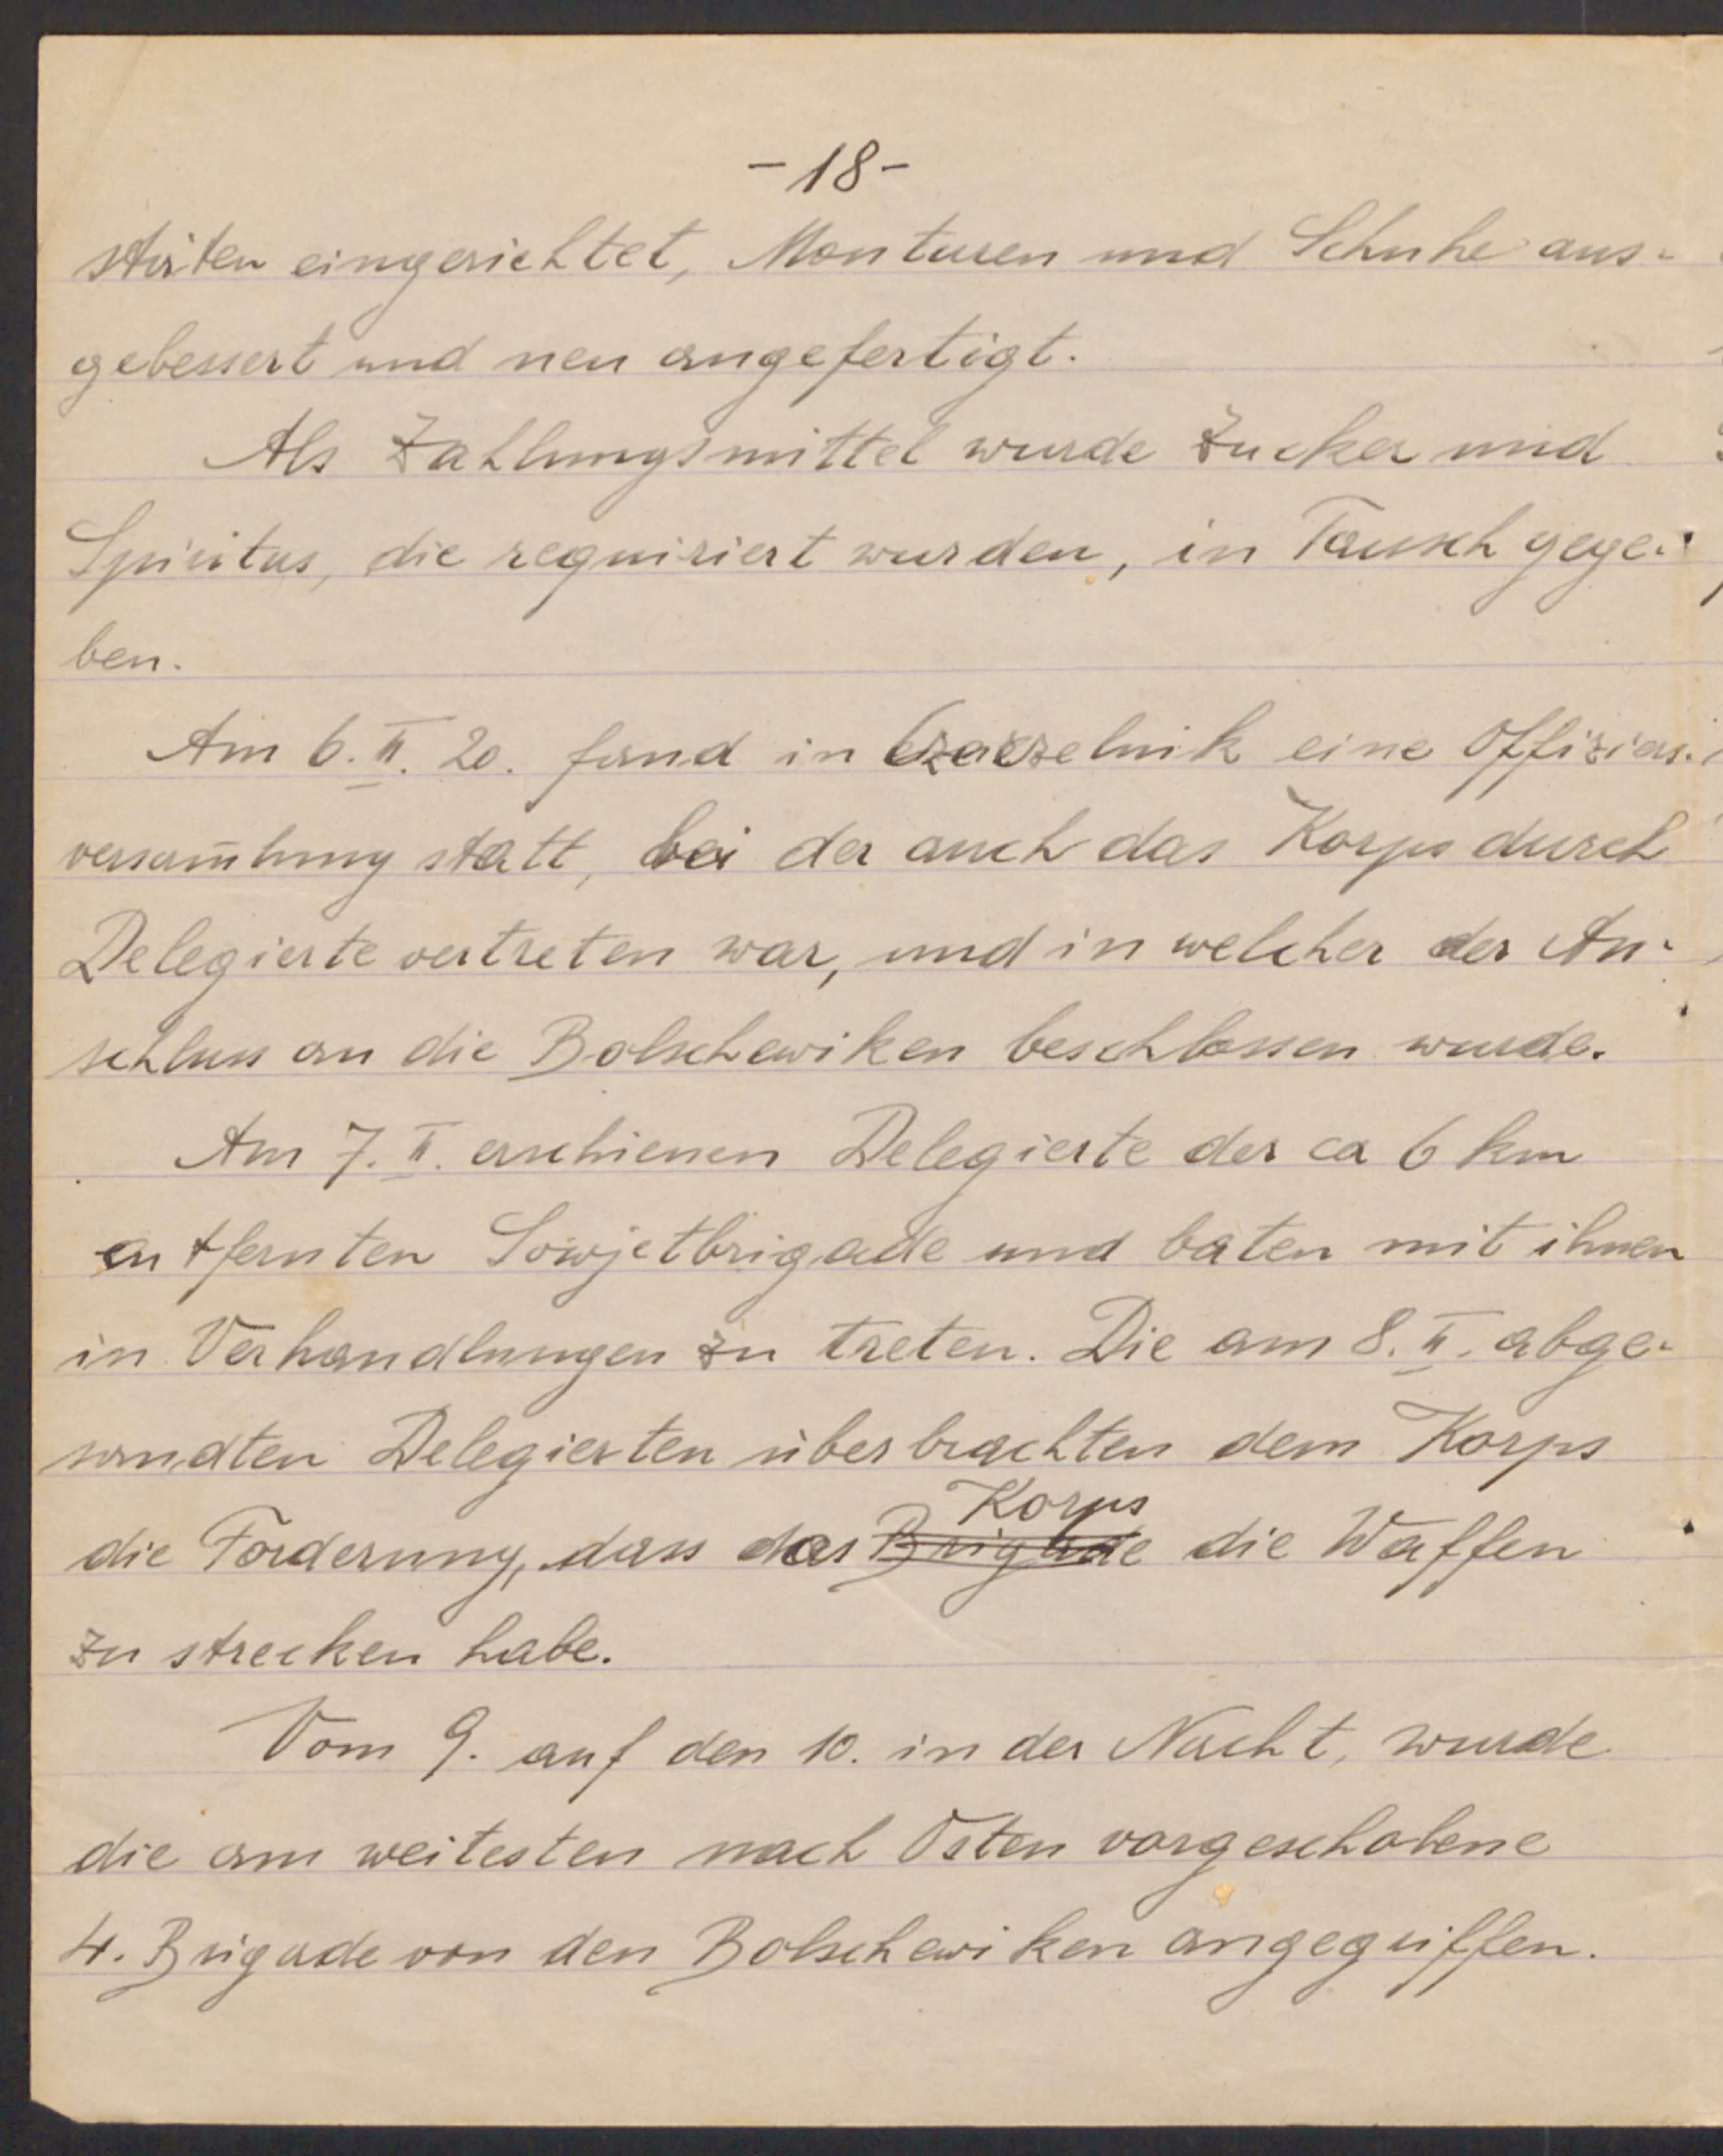 -18-
stätten eingerichtet, Monturen und Schuhe aus-
gebessert und neu angefertigt.
Als Zahlungsmittel wurde Zucker und
Spiritus, die requiriert wurden, in Tausch gege-
ben.
Am 6. II. 20. fand in Czaczelnik eine Offiziers-
versam̄lung statt, bei der auch das Korps durch
Delegierte vertreten war, und in welcher der An-
schluss an die Bolschewiken beschlossen wurde.
Am 7. II. erschienen Delegierte der ca 6 km
entfernten Sowjetbrigade und baten mit ihnen
in Verhandlungen zu treten. Die am 8. II. abge-
sandten Delegierten überbrachten dem Korps
Korps
die Forderung, dass das Brigade die Waffen
zu strecken habe.
Vom 9. auf den 10. in der Nacht, wurde
die am weitesten nach Osten vorgeschobene
4. Brigade von den Bolschewiken angegriffen.